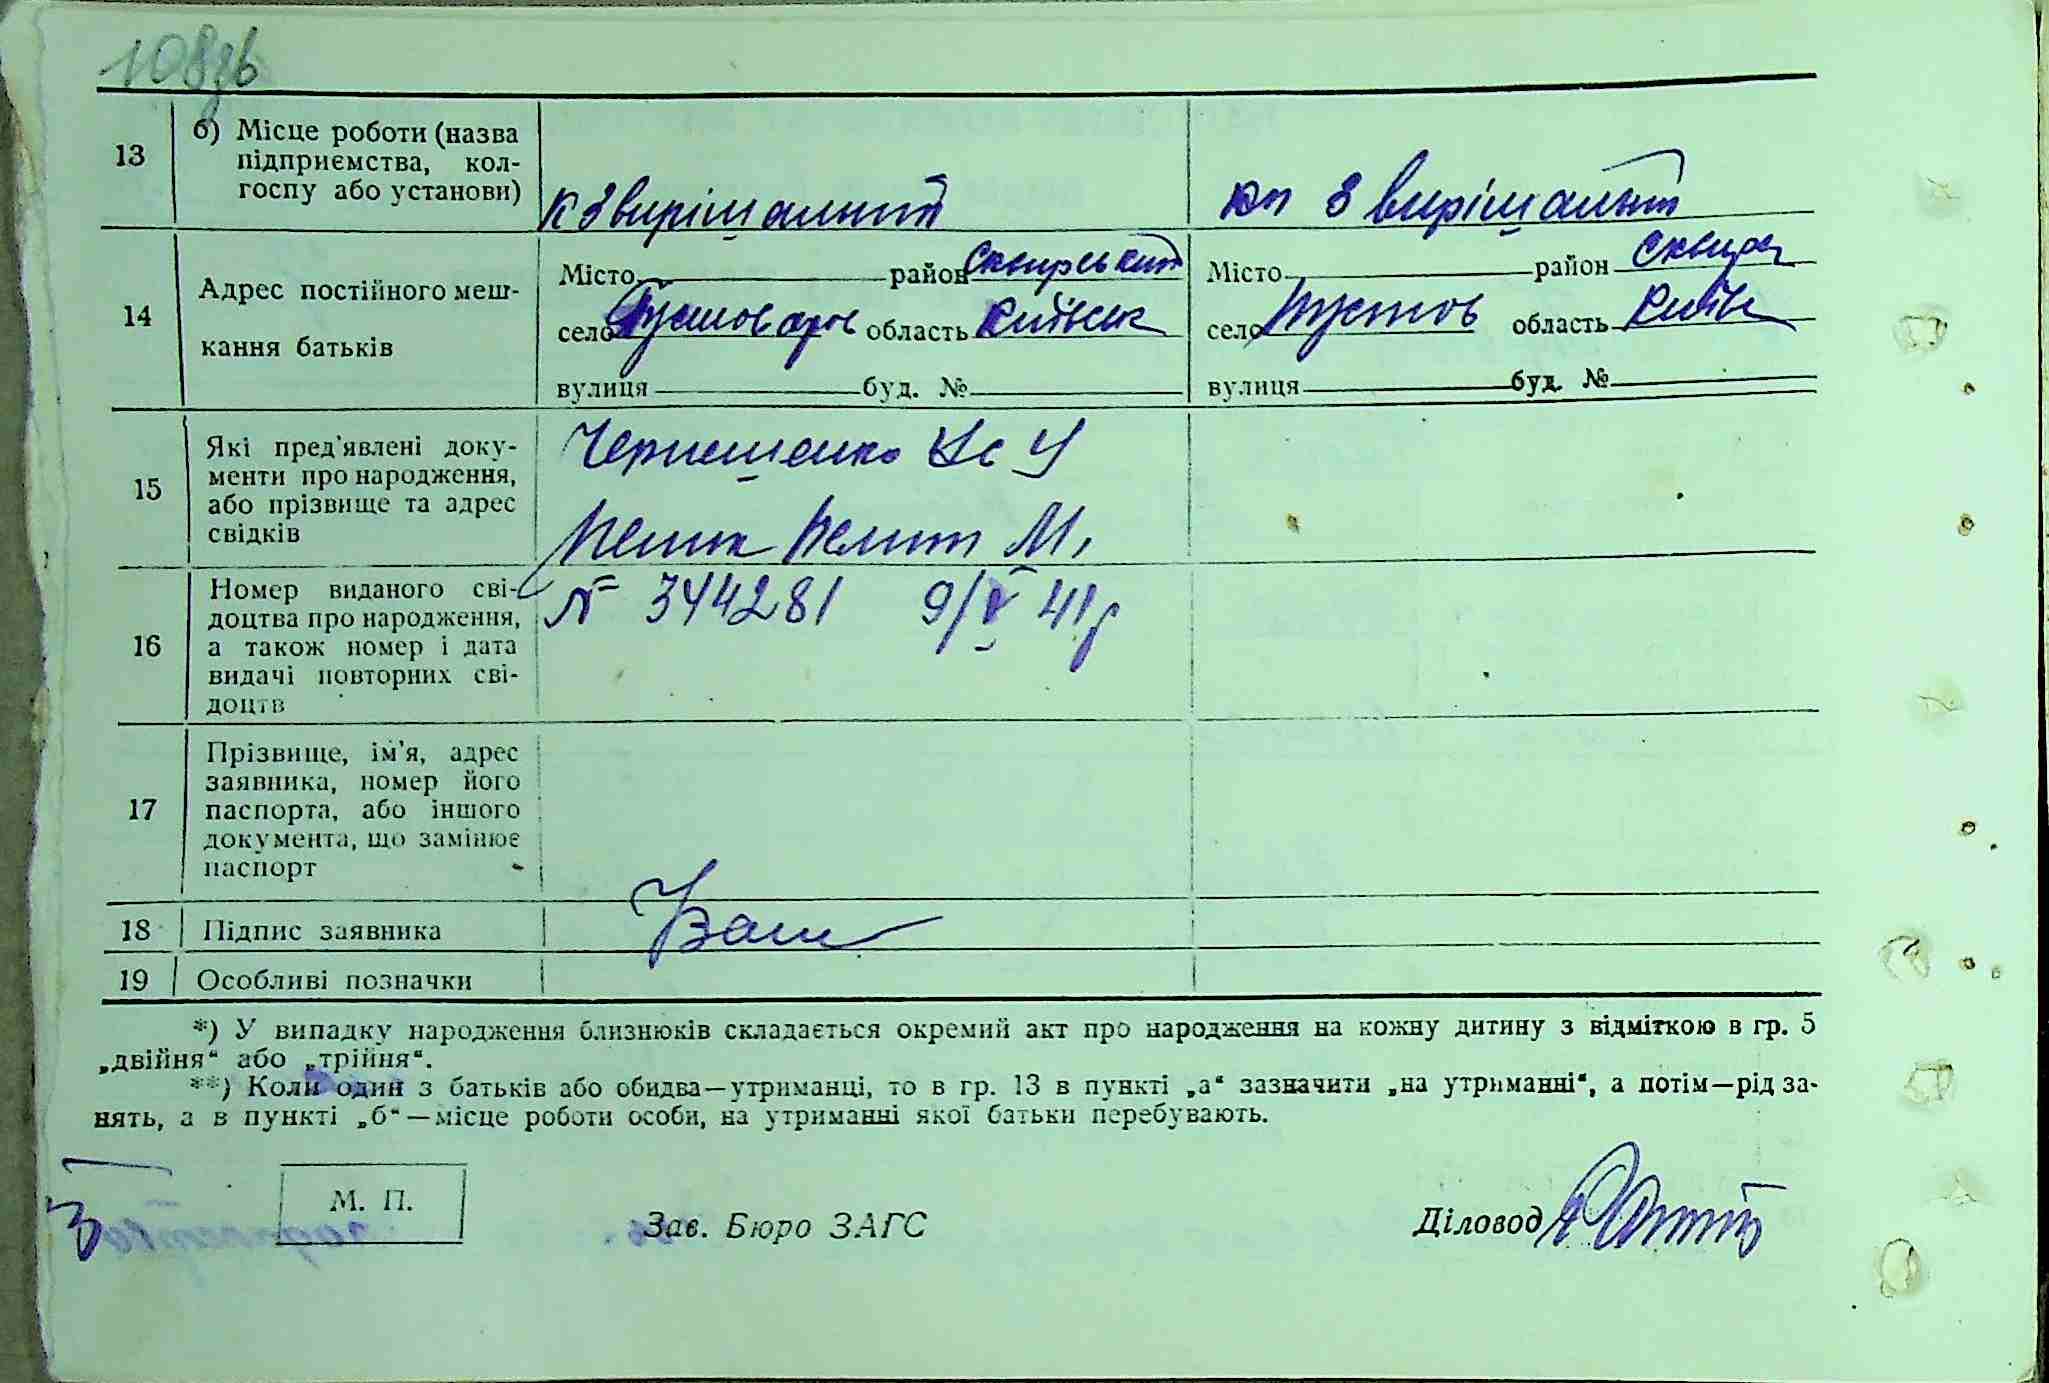 108зв
13
б) Місце роботи (назва
підприємства, кол-
госпу або установи)
к 3 вирішальний
кп 3 вирішальн
14
Адрес постійного меш-
кання батьків
Місто район Сквирський
село область Київськ
вулиця буд. №
Місто район Сквир
село Пустов область Київ
вулиця буд. №
15
Які пред'явлені доку-
менти про народження,
або прізвище та адрес
свідків
М.
16
Номер виданого сві-
доцтва про народження,
а також номер і дата
видачі повторних сві-
доцтв
№ 344281 9/V 41р
17
Прізвище, ім'я, адрес
заявника, номер його
паспорта, або іншого
документа, що замінює
паспорт
18
Підпис заявника
19
Особливі позначки
*) У випадку народження близнюків складається окремий акт про народження на кожну дитину з відміткою в гр. 5
„двійня“ або „трійня“.
**) Коли один з батьків або обидва—утриманці, то в гр. 13 в пункті „а“ зазначити „на утриманні“, а потім—рід за-
нять, а в пункті „б“—місце роботи особи, на утриманні якої батьки перебувають.
М. П.
Зав. Бюро ЗАГС
Діловод